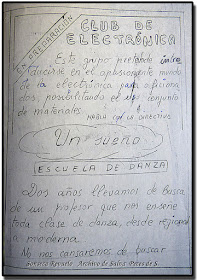 EN PREPARACIÓN
CLUB DE
ELECTRÓNICA
Este grupo pretende
ducirse en el apasionante mundo
de la electrónica para aficiona
dos, posibilitando el uso conjunto
de materiales.
HABLA CON LA DIRECTIVA
Un sueño
ESCUELA DE DANZA
Dos años llevamos de busca
de un profesor que nos enseñe
toda clase de danza, desde regional
a moderna.
No nos cansaremos de buscar.